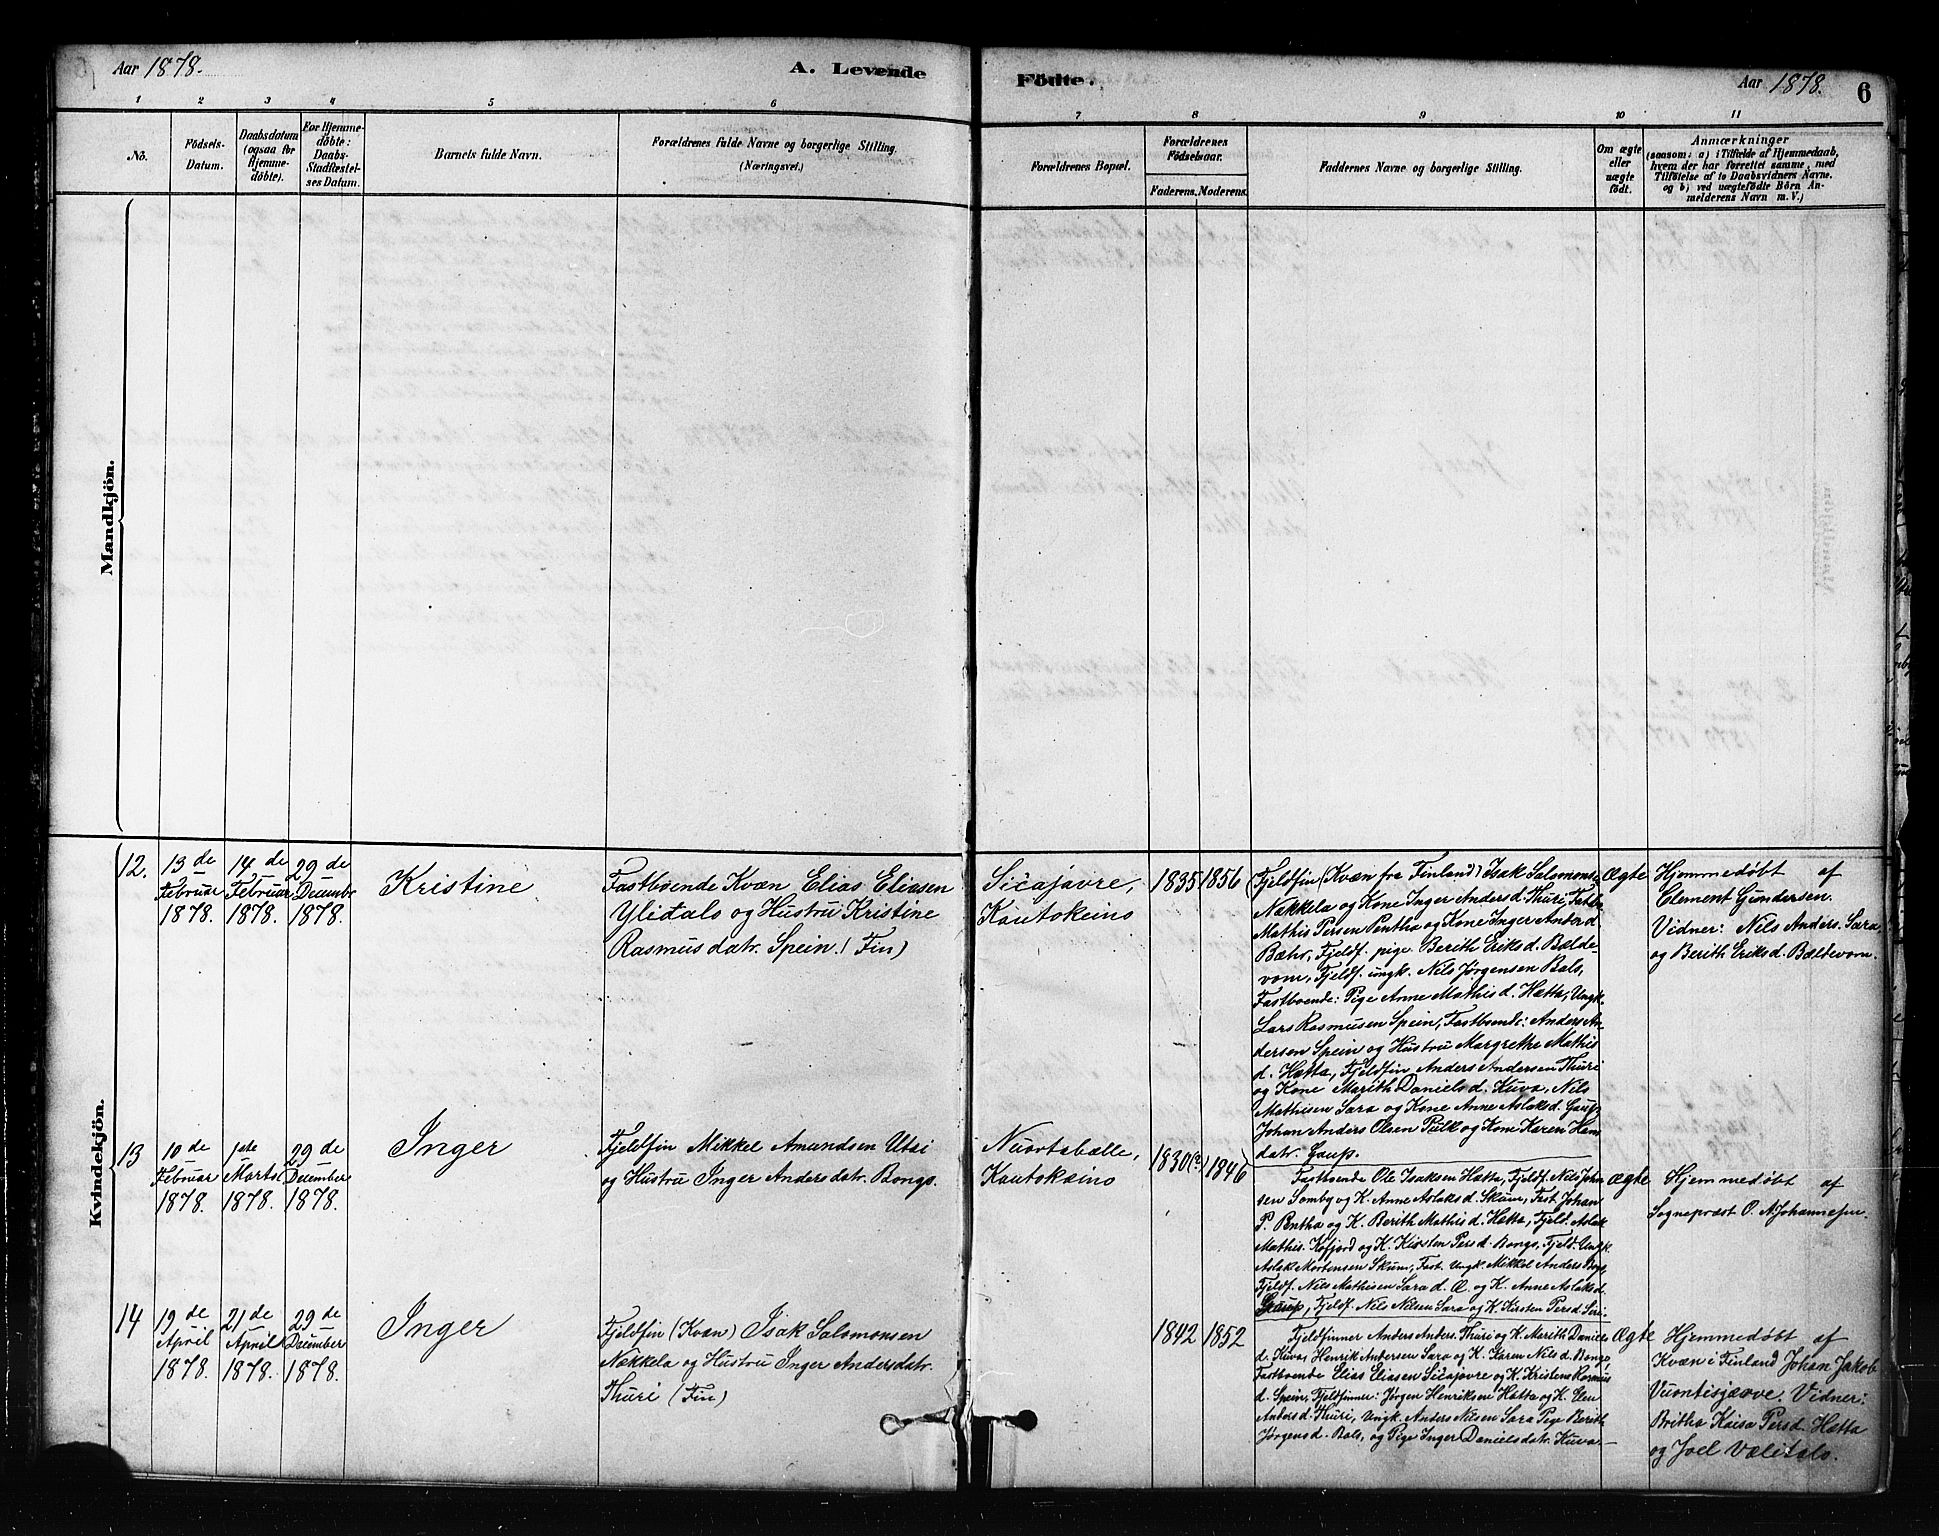 Aar 1878.
A. Levende
Födte.
Aar 1878.
6
1 2 3 4 5 6 7 8 9 10 11
No.
Födsels-
Datum.
Daabsdatum
(ogsaa for
Hjemme-
döbte).
For Hjemme-
döbte:
Daabs-
Stadfæstel-
ses Datum.
Barnets fulde Navn.
Forældrenes fulde Navne og borgerlige Stilling.
(Næringsvei.)
Forældrenes Bopæl.
Forældrenes
Födselsaar.
Faderens. Moderens.
Faddernes Navne og borgerlige Stilling.
Om ægte
eller
uægte
födt.
Anmærkninger
(saasom: a) i Tilfælde af Hjemmedaab,
hvem der har forrettet samme, med
Tilföielse af to Daabsvidners Navne,
og b) ved uægtefödte Börn An-
melderens Navn m. V.)
Mandkjön.
Kvindekjön.
12.
13 de
Februar
1878.
14 de
Februar
1878.
29 de
December
1878.
Kristine
Fastboende Kvæn Elias Eliasen
Ylidalo og Hustru Kristine
Rasmusdatr. Spein. (Fin)
Sičajavre,
Kautokeino
1835 1856
Fjeldfin (Kvæn fra Finland) Isak Salomons.
Nækkela og Kone Inger Andersd. Thuri, Fastb.
Mathis Persen Pentha og Kone Inger Andersd.
Bæhr, Fjeldf. pige Berith Eriksd. Bælde-
vom, Fjeldf. ungk. Nils Jørgensen Bals,
Fastboende: Pige Anne Mathisd. Hætta, Ungk.
Lars Rasmusen Spein, Fastboende: Anders An-
dersen Spein og Hustru Margrethe Mathis
d. Hætta, Fjeldfin Anders Andersen Thuri
og Kone Marith Danielsd. Kuva, Nils
Mathisen Sara og Kone Anne Aslaksd. Gaup,
Johan Anders Olsen Pulk og Kone Karen Hen
datr. Gaup.
Ægte
Hjemmedøbt af
Clement Gundersen.
Vidner: Nils Anders. Sara,
og Berith Eriksd. Bældevom.
13
10 de
Februar
1878.
1ste
Marts
1878.
29 de
December
1878.
Inger
Fjeldfin Mikkel Amundsen Utsi
og Hustru Inger Andersdatr. Bongo.
Nuortabælle,
Kautokeino
1830 (?) 1846
Fastboende Ole Isaksen Hætta, Fjeldf. Nils John
sen Somby og K. Anne Aslaksd. Skum, Fast. Johan
P. Bntha og K. Berith Mathisd. Hætta, Fjeld. Aslak
Mathis. Kofjord og K. Kirsten Persd. Bongo, Fjeld. Ungk.
Aslak Mortensen Skum, Fast. Ungk. Mikkel Anders Bongo,
Fjeldf. Nils Mathisen Sara d. Æ. og K. Anne Aslaksd.
Gaup, Fjeldf. Nils Nilsen Sara og K. Kirsten Persd. Siri.
Ægte
Hjemmedøbt af
Sognepræst O. A. Johannesen.
14
19 de
April
1878.
21 de
April
1878.
29 de
December
1878.
Inger
Fjeldfin (Kvæn) Isak Salomonsen
Nækkela og Hustru Inger Andersdatr.
Thuri (Fin)
1842 1852
Fjeldfinner Anders Anders. Thuri og K. Merith Daniels
d. Kuva, Henrik Andersen Sara og K. Karen Nilsd. Bongo,
Fastboende Elias Eliasen Sičajavre og K. Kristine Rasmus
d. Spein, Fjeldfinner: Jørgen Henriksen Hætta og K. Elen
Andersd. Thuri, Ungk. Anders Nilsen Sara Pige Berith
Jørgensd. Bals, og Pige Inger Danielsdatr. Kuva.
Ægte
Hjemmedøbt af
Kvæn i Finland Johan Jakob
Vuontisjærve. Vidner:
Britha Kaisa Persd. Hætta
og Joel Valitalo.